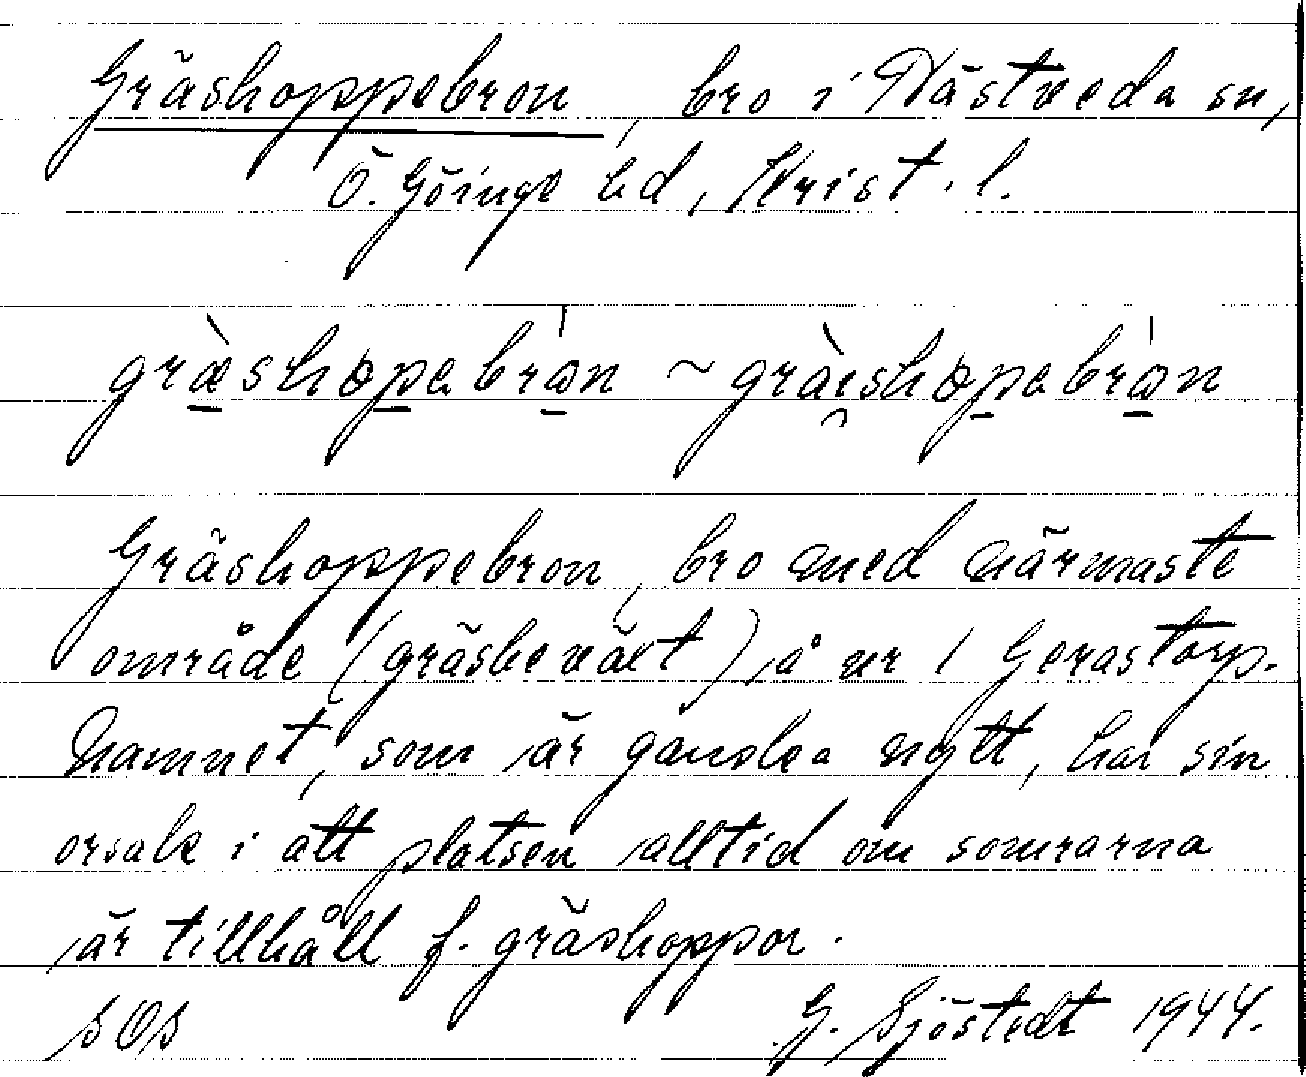 Gräshoppebron, bro i Västveda sn,
Ö. Göinge hd, Krist. l.
græ̀shopebrɷn ~ gràishopebrɷn
Gräshoppebron, bro med närmaste
område (gräsbeväxt) å nr 1 Gerastorp.
Namnet, som är ganska nytt, har sin
orsak i att platsen alltid om somrarna
är tillhåll f. gräshoppor.
sOs G. Sjöstedt 1944.